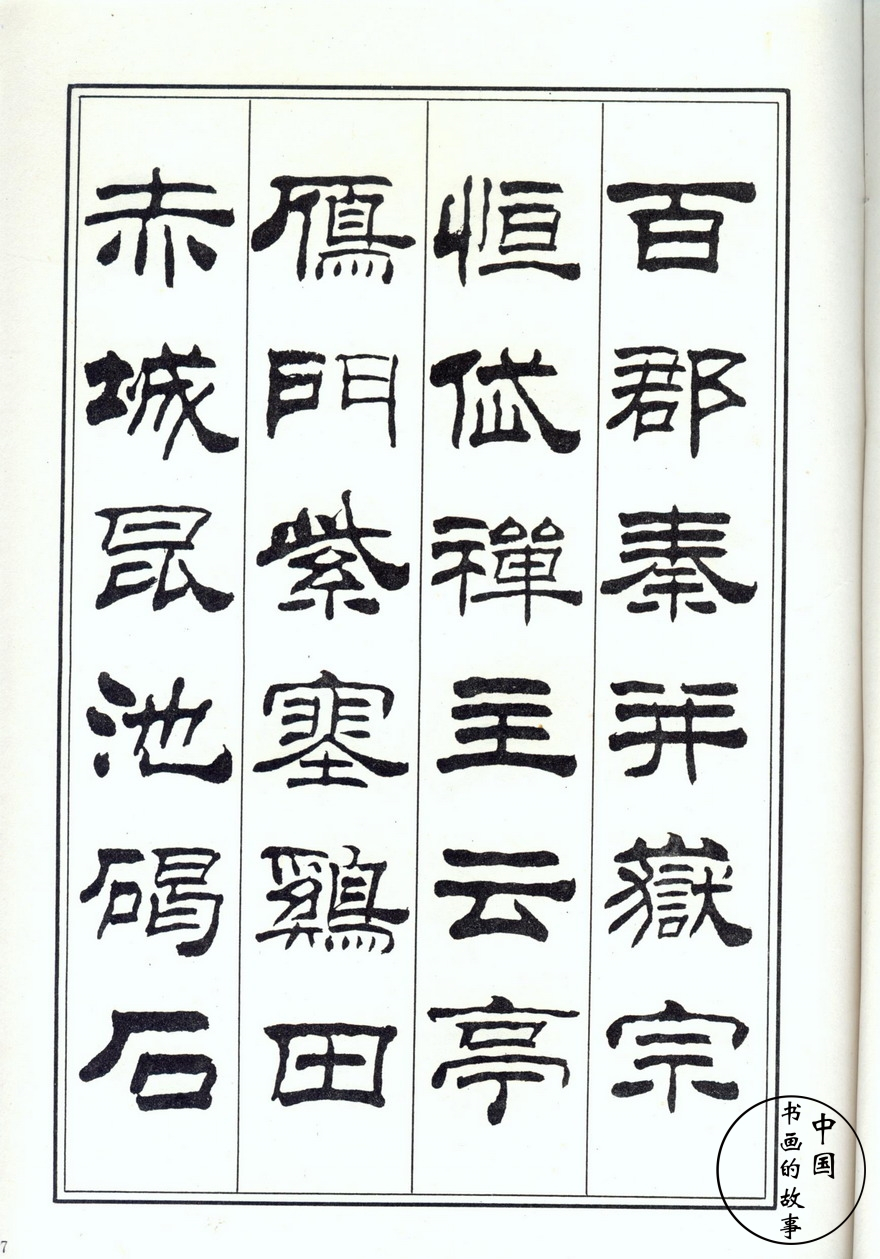 百郡秦并嶽宗
恒岱禪主云亭
鴈門紫塞鷄田
赤城昆池碣石
中国
书画的故事
7